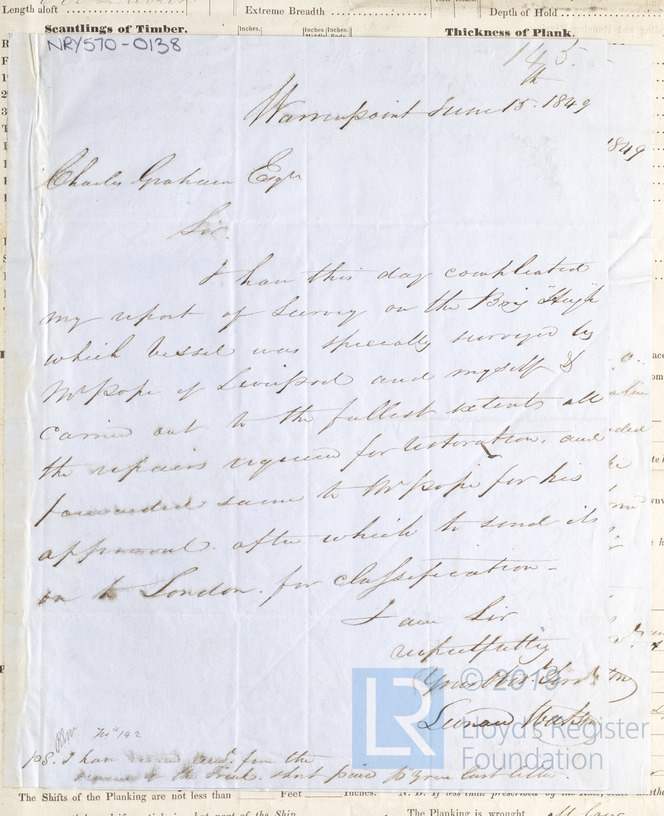 Length aloft Extreme Breadth Depth of Hold
Scantlings of Timber. Inches. Inches Inches Thickness of Plank.
NRY570-0138
145
Warrenpoint June 15th 1849
1849
Charles Graham Esqr
Sir.
I have this day compleated
my report of Survey on the Brig "Hugh
which vessel was specially surveyed by
Mr Pope of Liverpool and myself &
carried out to the fullest extents all
the repairs required for restoration. and
forwarded same to Mr Pope for his
approval. after which to send its
on to London. for classification-
I am Sir
respectfully
Your Obt. Servt
© 2019
Lloyd's Register
Foundation
LR
No 142
PS. I have from the
short paid last letter.
The Shifts of the Planking are not less than Feet Inches. N. B. If less than prescribed by the
The Planking is wrought